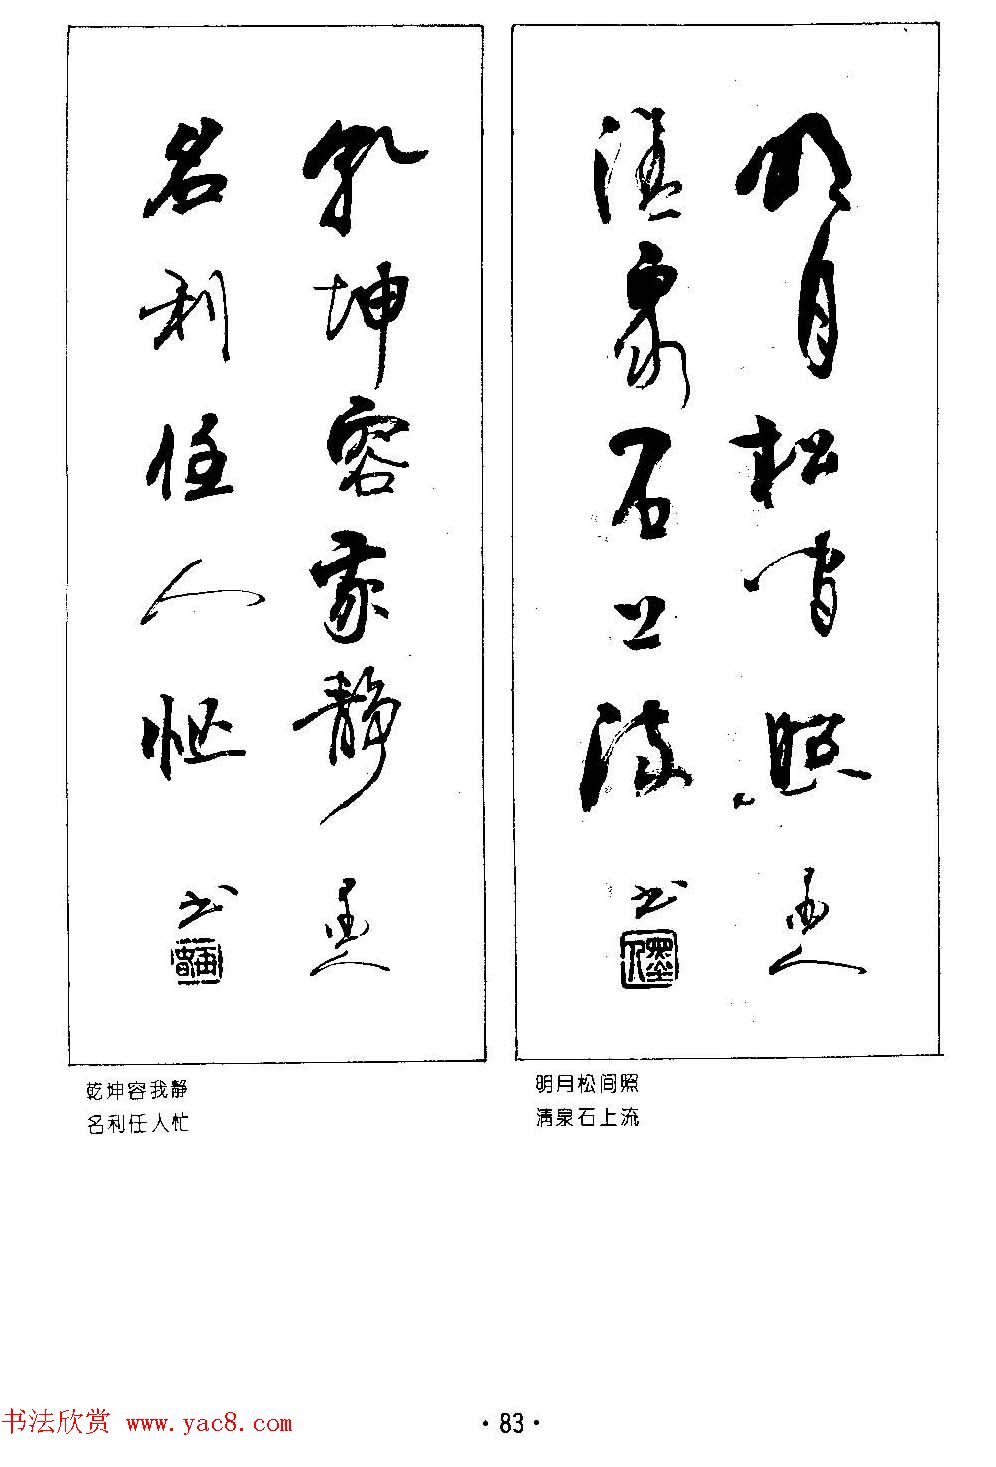 明月松间照
清泉石上流
墨人
书
墨人
乾坤容我静
名利任人忙
墨人
书
明月松间照
清泉石上流
乾坤容我静
名利任人忙
·83·
书法欣赏 www.yac8.com